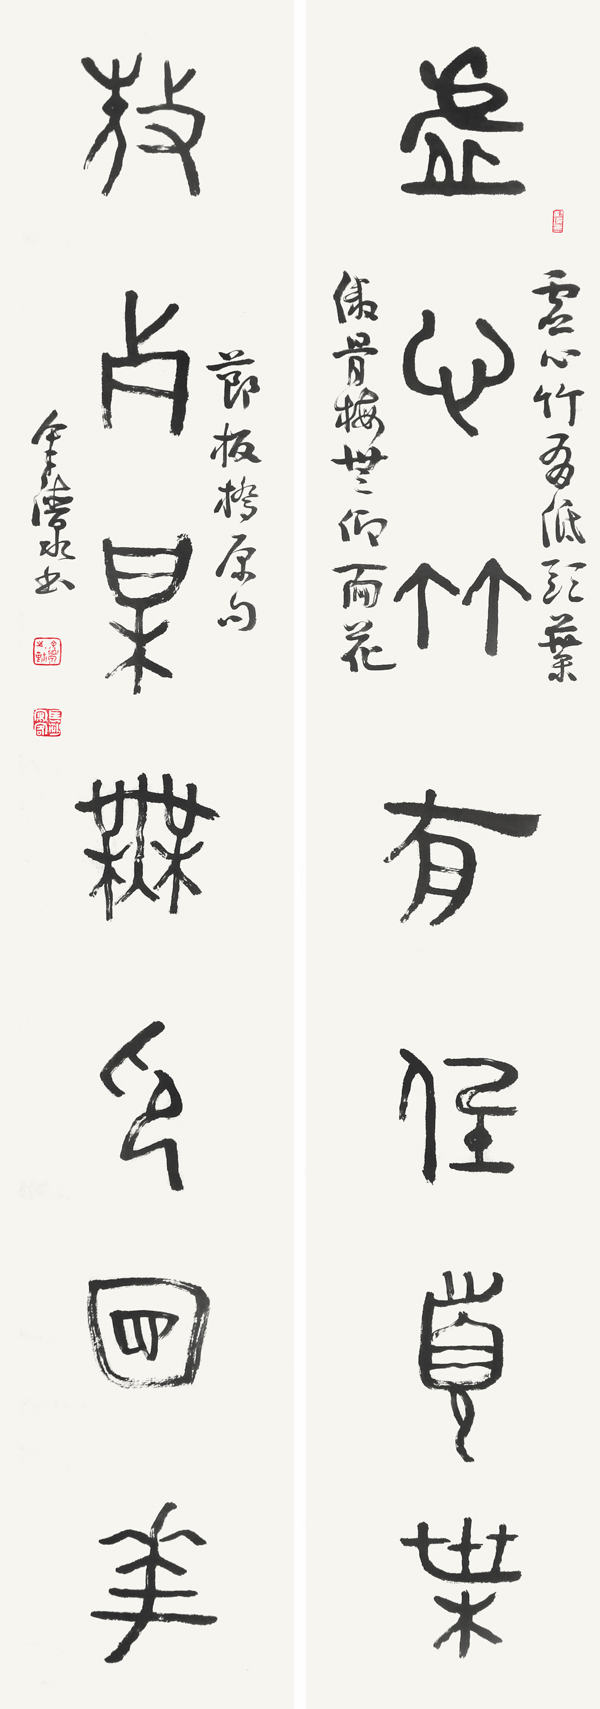 虛心竹有低頭葉
虛心竹有低頭葉
傲骨梅無仰面花
敖骨某無卬面華
節板橋原句
書